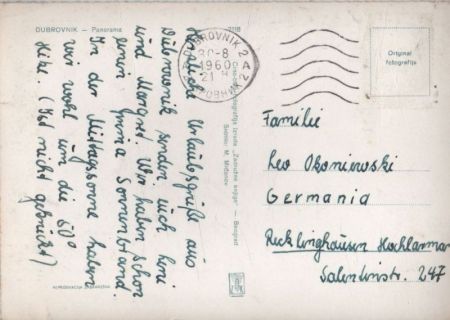 DUBROVNIK — Panorama
Herzliche Urlaubsgrüße aus
Dubrovnik senden euch Leni
und Margret. Wir haben schon
einen prima Sonnenbrand.
In der Mittagssonne haben
wir wohl um die 60°
Hitze. (Not nicht gebricht)
DUBROVNIK 2
30-8
1960
21
ДУБРОВНИК 2
Original
fotografija
Familie
Leo Okoniewski
Germania
Recklinghausen Hochlarmar
Salentinstr. 247